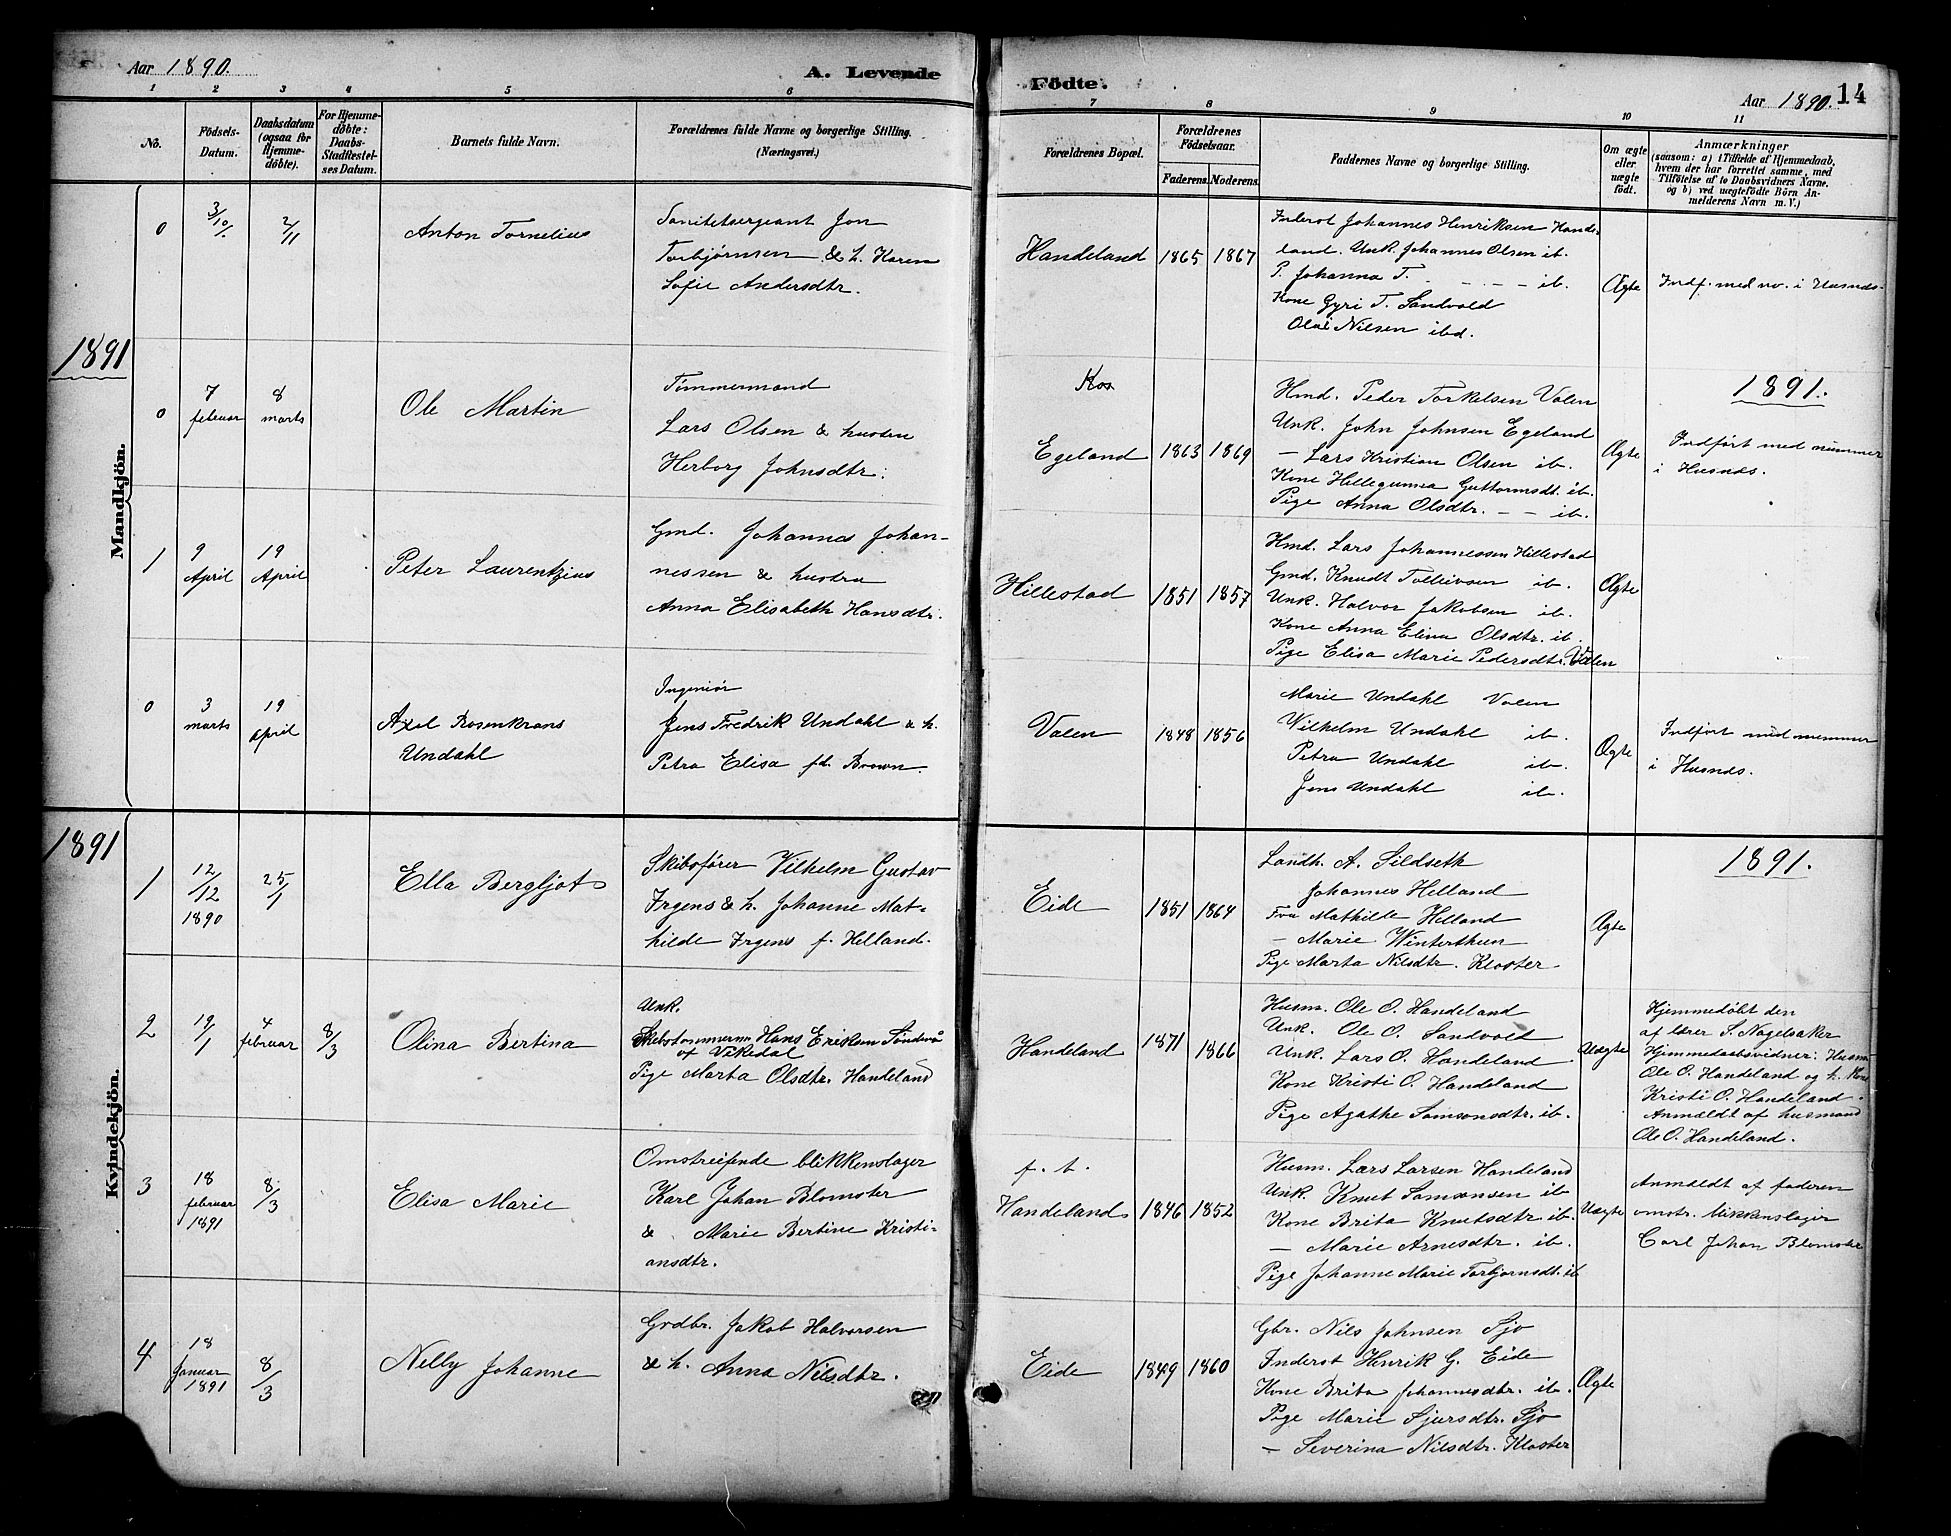 Aar 1890.
A. Levende
1 2 3 4 5 6
No.
Födsels-
Datum.
Daabsdatum
(ogsaa for
Hjemme-
döbte).
For Hjemme-
döbte:
Daabs-
Stadfestel-
ses Datum.
Barnets fulde Navn.
Forældrenes fulde Navne og borgerlige Stilling.
(Næringsvei.)
0
3/10
2/11
Anton Tornelius
Sanitetsergeant Jon
Torbjørnsen & h. Karen
Sofie Andersdtr.
1891
Mandkjön.
0
7
februar
8
marts
Ole Martin
Tømmermand
Lars Olsen & hustru
Herborg Johnsdtr.
1
9
April
19
April
Peter Laurentzius
Gmd. Johannes Johan-
nessen & hustru
Anna Elisabeth Hansdtr.
0
3
marts
19
april
Axel Rosenkrans
Undahl
Ingeniør
Jens Fredrik Undahl & h.
Petra Elisa fd. Brown.
1891
Kvindekjön.
1
12/12
1890
25/1
Ella Bergljot
Skibsfører Vilhelm Gustav
Irgens & h. Johanne Mat-
hilde Irgens f. Helland.
2
19/1
4
februar
8/3
Olina Bertina
Unk.
Skibstømmerm Hans Eriksen
af Vikedal
Pige Marta Olsdtr. Handeland
3
18
februar
1891
8/3
Elisa Marie
Omstreifende blikkenslager
Karl Johan Blomster
& Marie Bertine Kristi-
ansdtr.
4
18
Januar
1891
8/3
Nelly Johanne
Grdbr. Jakob Halvorsen
& h. Anna Nilsdtr.
Födte.
Aar 1890. 14
7 8 9 10 11
Forældrenes Bopæl.
Forældrenes
Födselsaar.
Faderens. Moderens.
Faddernes Navne og borgerlige Stilling.
Om ægte
eller
uægte
födt.
Anmærkninger
(saasom: a) i Tilfælde af Hjemmedaab,
hvem der har forrettet samme, med
Tilföielse af to Daabsvidners Navne,
og b) ved uægtefödte Börn An-
melderens Navn m. V.)
Handeland 1865 1867
Inderst Johannes Henriksen Hande-
land. Unk. Johannes Olsen ib.
P. Johanna T. - - - ib.
Kone Gyri T. Sandvold
Olai Nilsen ibd.
Ægte
Indf. med no. i Husnds.
Egeland 1863 1869
Hmd. Peder Torkelsen Valen
Unk. John Johnsen Egeland
- Lars Kristian Olsen ib.
Kone Hillegunna Guttormsdt. ib.
Pige Anna Olsdtr. - - ib.
Ægte
1891.
Indført med nummer
i Husnds.
Hillestad 1851 1857
Hmd. Lars Johannessen Hillestad
Gmd. Knudt Tolleivsen ib.
Unk. Halvor Jakobsen ib.
Kone Anna Elina Olsdtr. ib.
Pige Elisa Marie Pedersdtr. Valen
Ægte
Valen 1848 1856
Marie Undahl Valen
Wilhelm Undahl ib.
Petra Undahl ib.
Jens Undahl ib.
Ægte
Indført med nummer
i Husnds.
Eide 1851 1864
Landh. A. Sildseth
Johannes Helland
Fru Mathilde Helland
- Marie Winterthun
Pige Marta Nilsdtr. Kloster
Ægte
1891.
Handeland 1871 1866
Husm. Ole O. Handeland
Unk. Ole O. Sandvold
Unk. Lars O. Handeland
Kone Kristi O. Handeland
Pige Agathe Samsonsdtr. ib.
Uægte
Hjemmedøbt den
af lærer S. Nagelsaker
Hjemmedaabsvidner: Husm
Ole O. Handeland og h. Kone
Kristi O. Handeland.
Anmeldt af husmand
Ole O. Handeland.
f. t.
Handeland 1846 1852
Husm. Lars Larsen Handeland
Unk. Knut Samsonsen ib
Kone Brita Knutsdtr ib.
- Marie Arnesdtr. ib.
Pige Johanne Marie Torbjornsdt. ib
Uægte
Anmeldt af faderen
omstr. blikkenslager
Carl Johan Blomster
Eide 1849 1860
Gbr. Nils Johnsen Sjo
Inderst Henrik G. Eide
Kone Brita Johannesdtr. ib.
Pige Marie Sjursdtr. Sjo
- Severina Nilsdtr. Kloster
Ægte